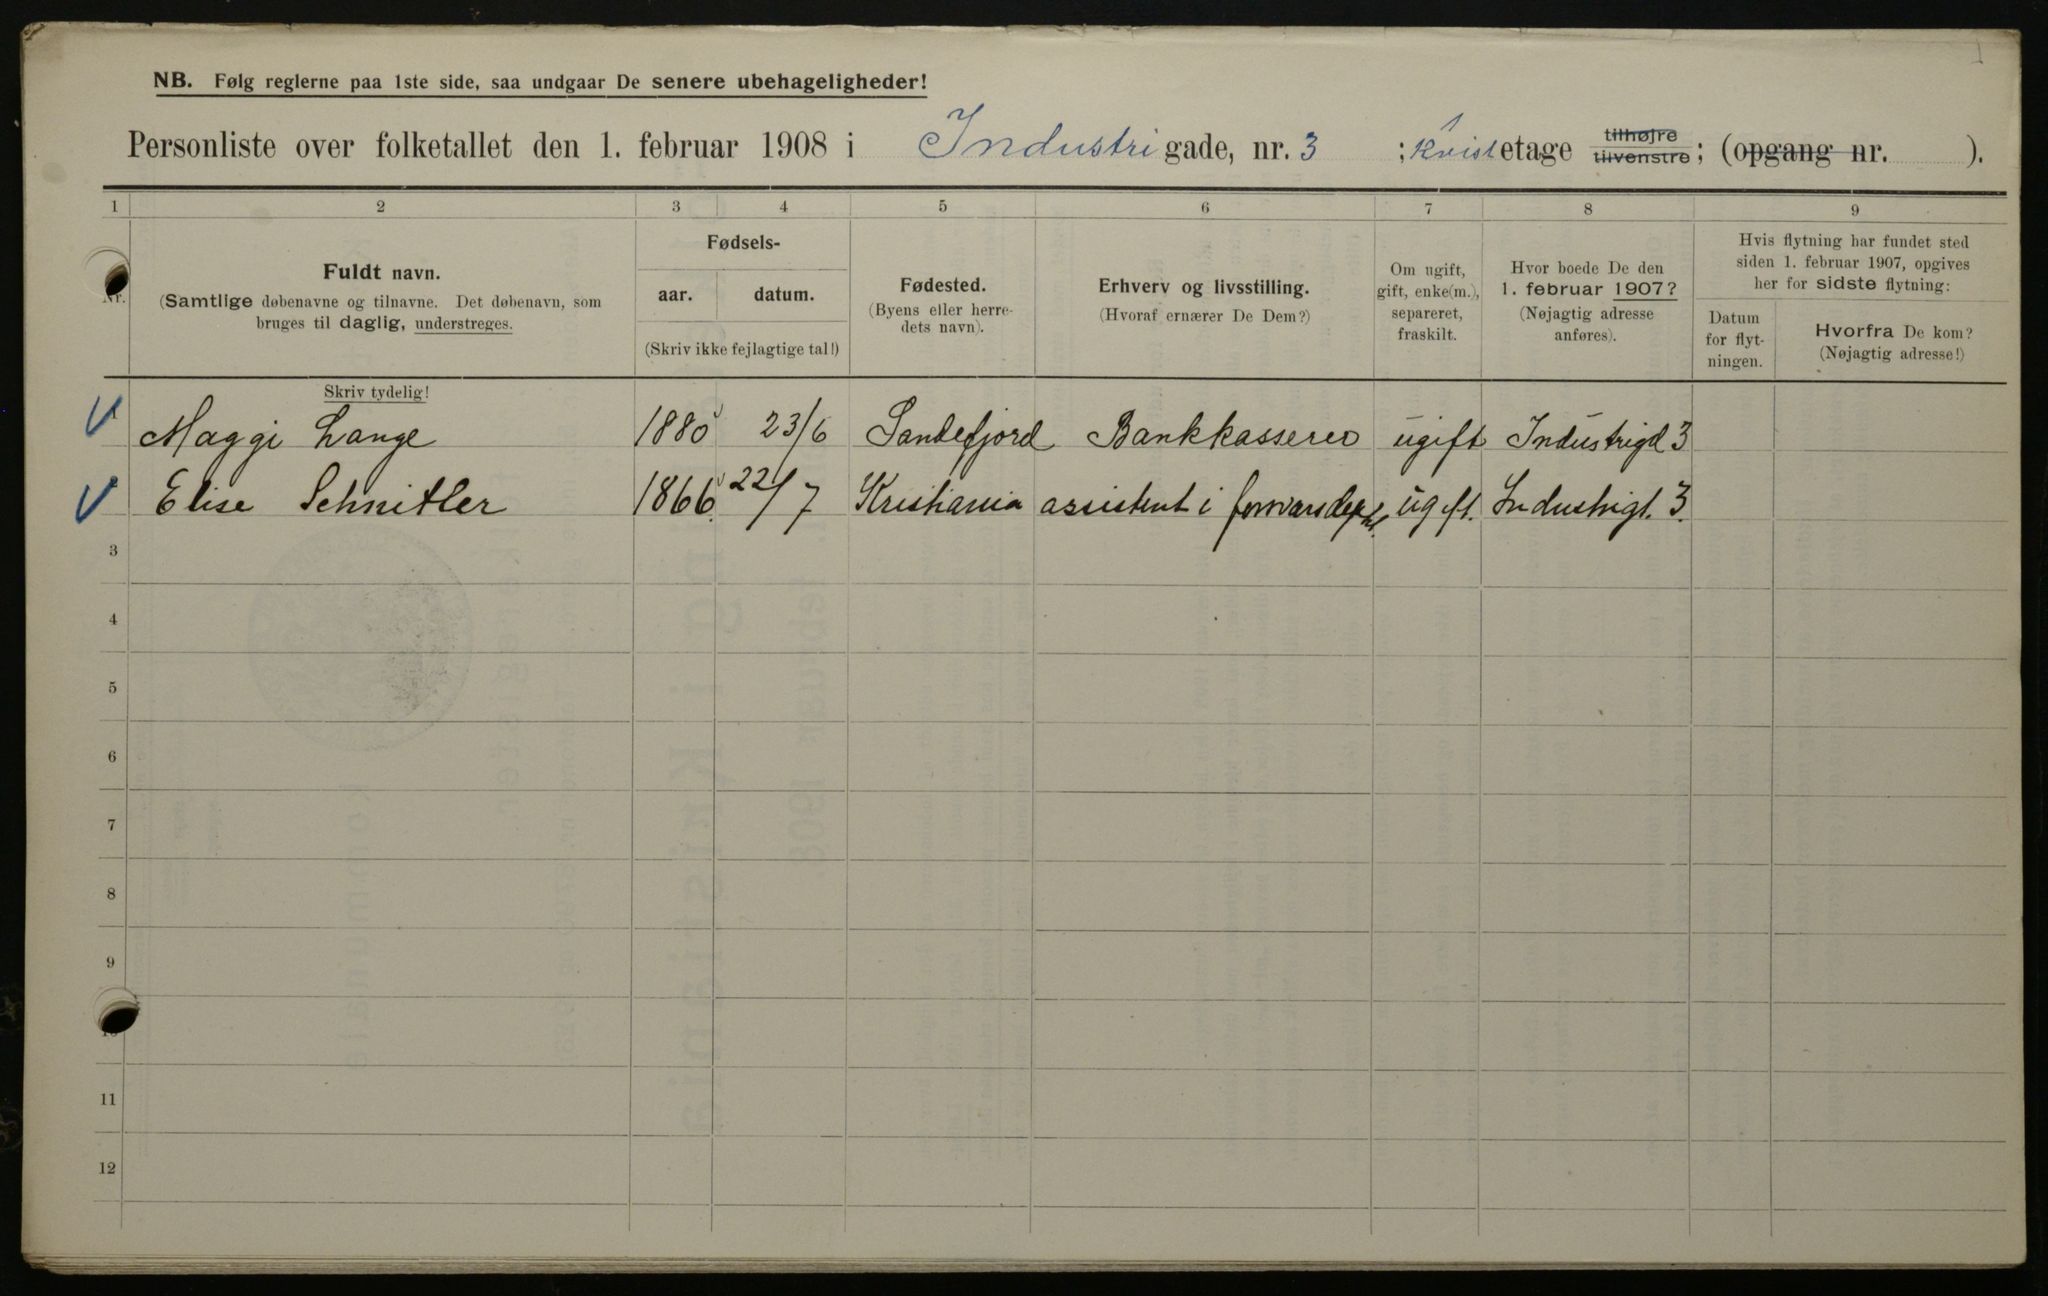 NB. Følg reglerne paa 1ste side, saa undgaar De senere ubehageligheder!
Personliste over folketallet den 1. februar 1908 i Industrigade, nr. 3 ; Kvistetage tilhøjre tilvenstre; (opgang nr. ).
1 2 3 4 5 6 7 8 9
Nr.
Fuldt navn.
(Samtlige døbenavne og tilnavne. Det døbenavn, som
bruges til daglig, understreges.
Fødsels-
aar. datum.
(Skriv ikke fejlagtige tal!)
Fødested.
(Byens eller herre-
dets navn).
Erhverv og livsstilling.
(Hvoraf ernærer De Dem?)
Om ugift,
gift, enke(m.),
separeret,
fraskilt.
Hvor boede De den
1. februar 1907?
(Nøjagtig adresse
anføres).
Hvis flytning har fundet sted
siden 1. februar 1907, opgives
her for sidste flytning:
Datum
for flyt-
ningen.
Hvorfra De kom?
(Nøjagtig adresse!)
Skriv tydelig!
Maggi Lange 1880 23/6 Sandefjord Bankkasserer ugift Industrigd 3
Elise Schnitler 1866 22/7 Kristiania assistent i ugift. Industrigt. 3.
3
4
5
6
7
8
9
10
11
12